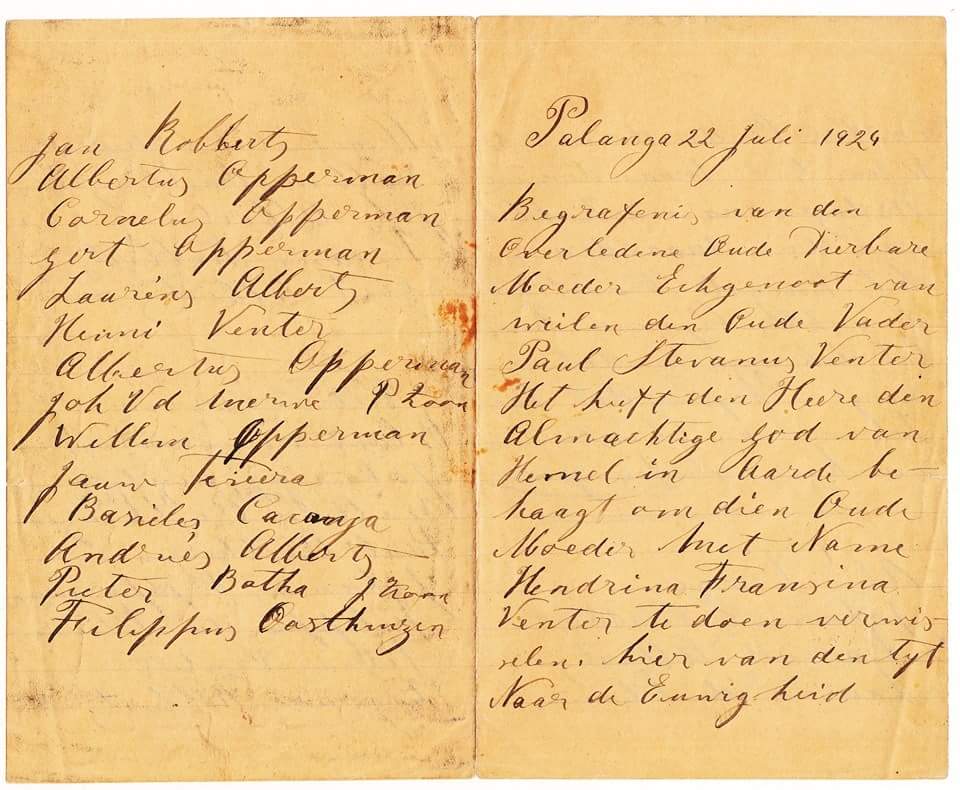 Jan Robberts
Albertus Opperman
Cornelus Opperman
gert Opperman
Lauréns Alberts
Henni Venter
Albertus Opperman
Joh V d Merwe P zoon
Willem Opperman
Jauw
Basieles
Andriés Alberts
Pieter Botha J zoon
Filippus Oosthuizen
Palanga 22 Juli 1924
Begrafenis van den
Overledene Oude Dierbare
Moeder Echgenoot van
weilen den Oude Vader
Paul Stevanus Venter
Het heeft den Heere den
Almachtige God van
Hemel in Aarde be-
haagt om dien Oude
Moeder met Name
Hendrina Fransina
Venter te doen verwis-
selen. hier van den tyt
Naar de Euwigheid